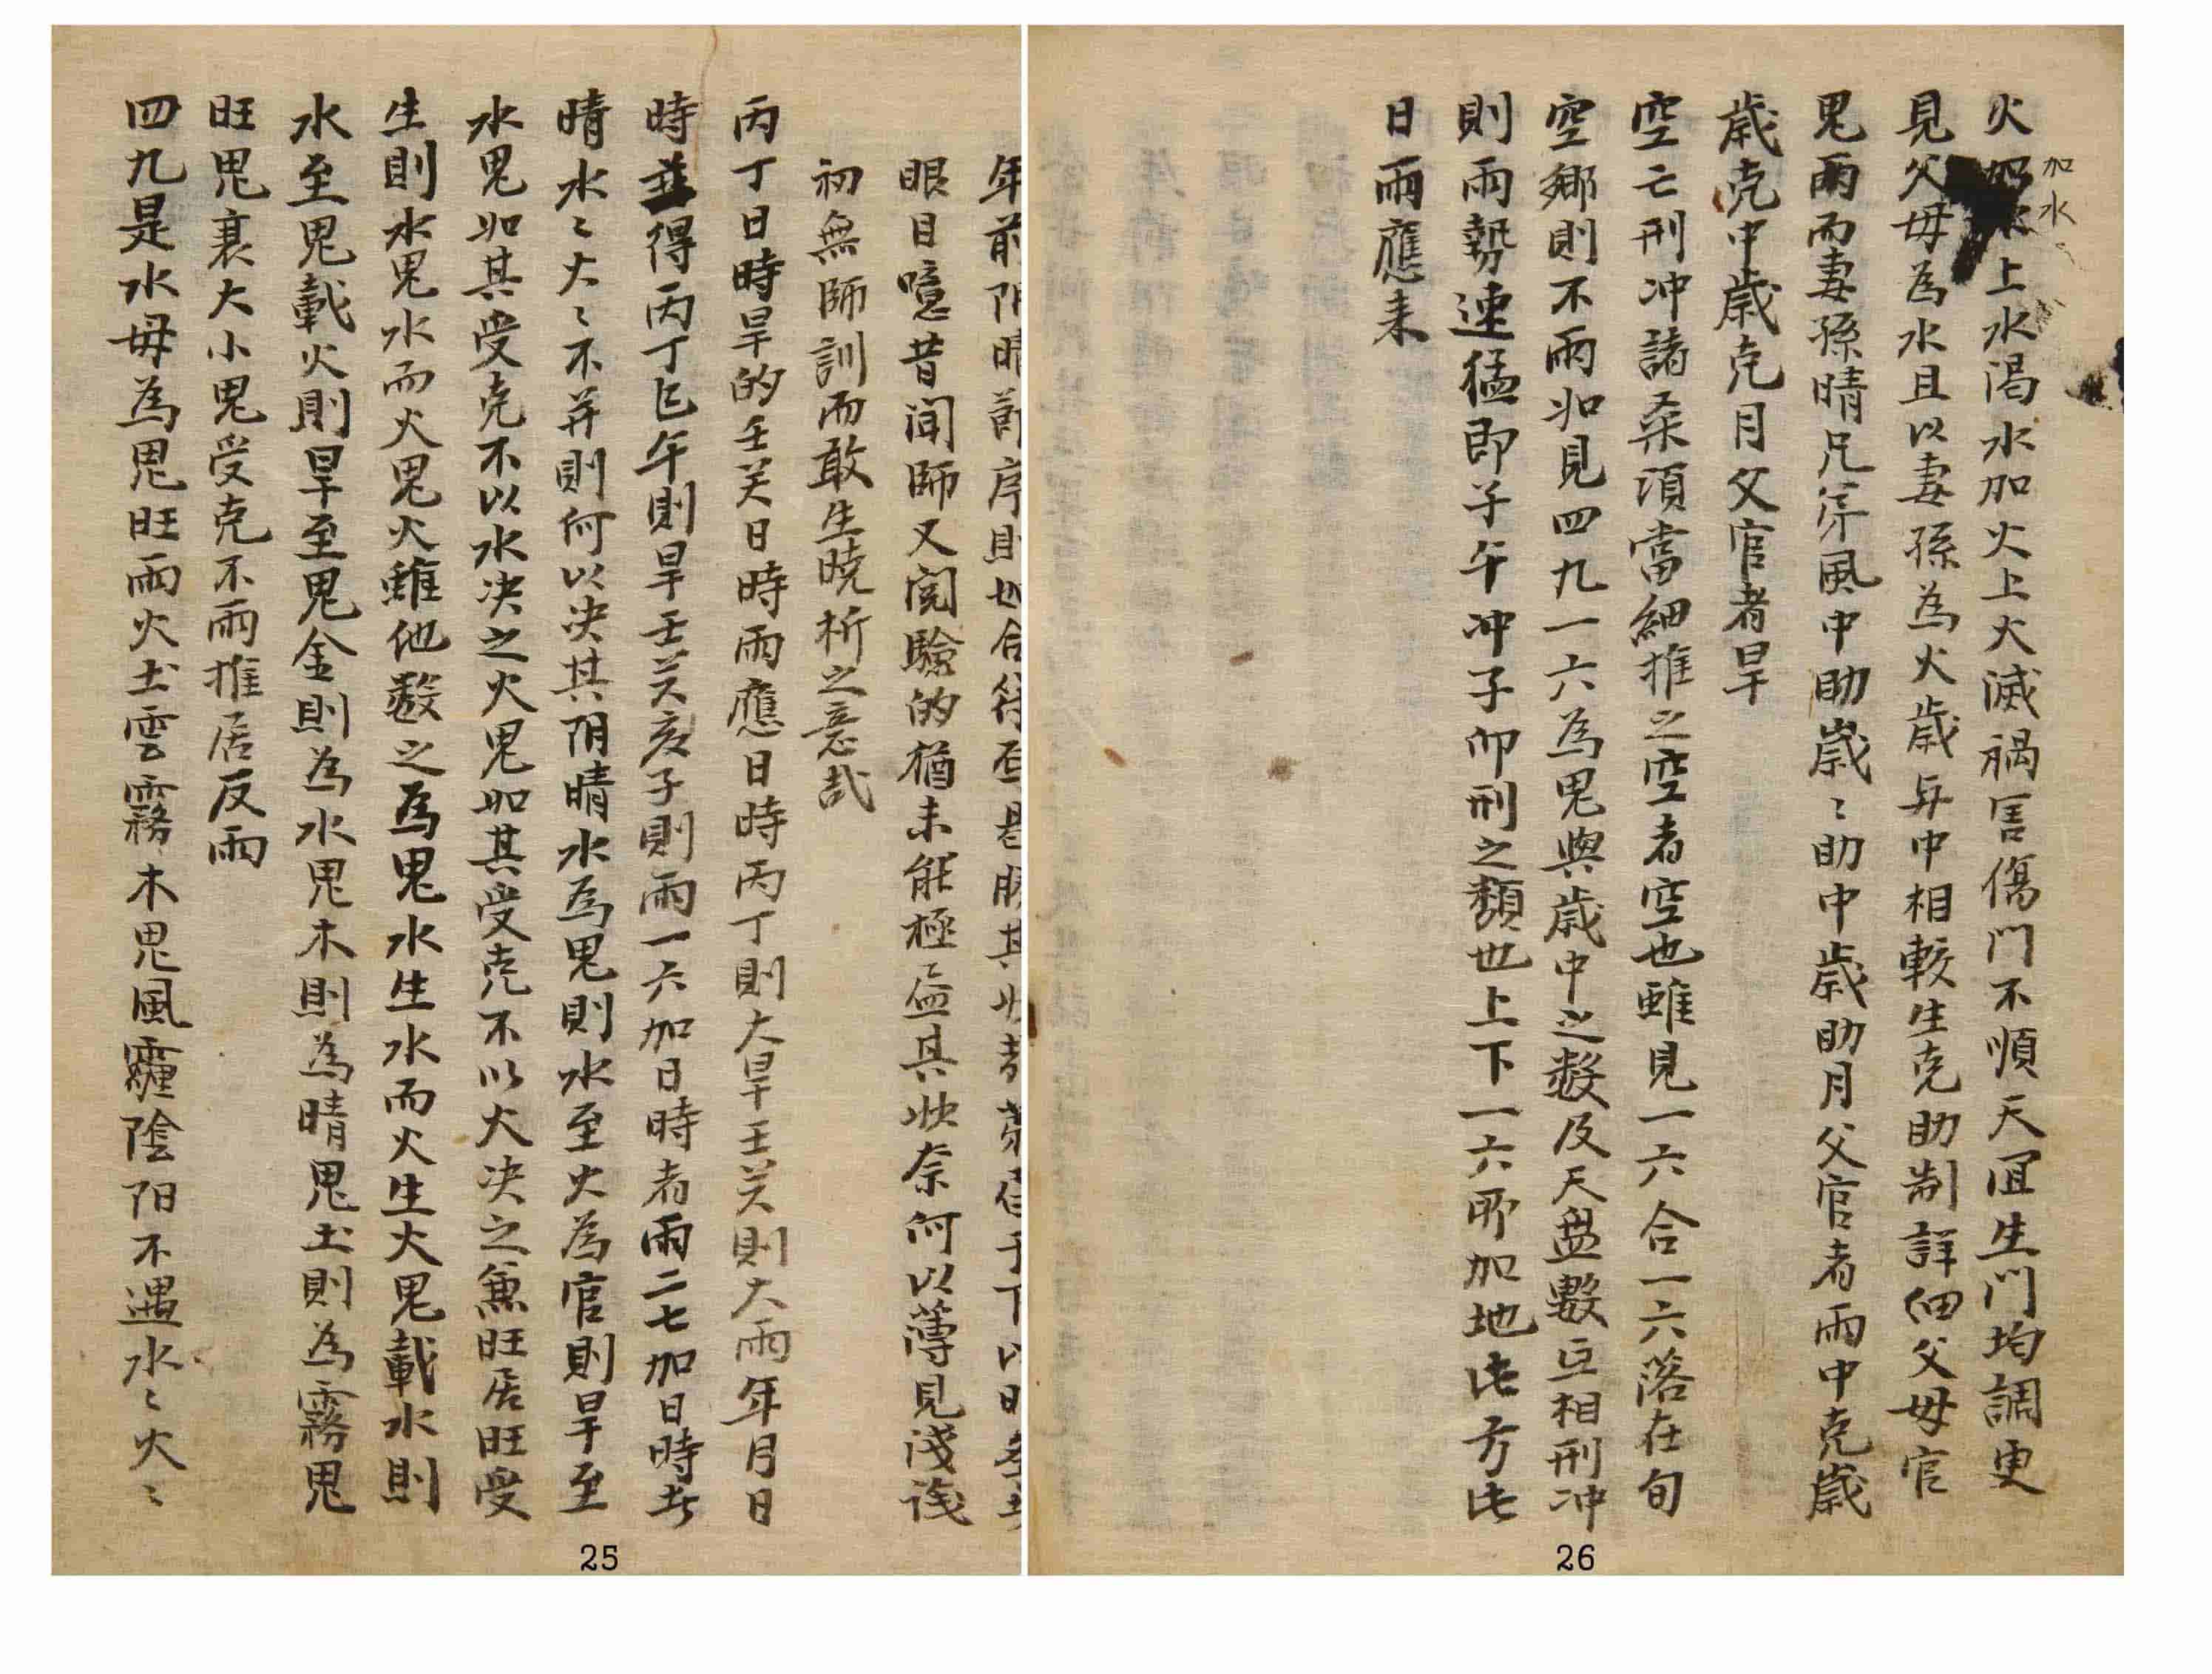 年前阴晴節序則
眼目噫昔聞師又閱驗的猶未能極盃其妝奈何以薄見淺淺
初無師訓而敢生曉析之意哉
丙丁日時旱的壬癸日時雨應日時丙丁則大旱壬癸則大雨年月日
時並得丙丁巳午則旱壬癸亥子則雨一六加日時者雨二七加日時者
晴水〻火〻不并則何以决其阴晴水為鬼則水至火為官則旱至
水鬼如其受克不以水决之火鬼如其受克不以火决之兼旺居旺受
生則水鬼水而火鬼火雖他數之為鬼水生水而火生火鬼載水則
水至鬼載火則旱至鬼金則為水鬼木則為晴鬼土則為霧鬼
旺鬼衰大小鬼受克不雨推居反雨
四九是水母為鬼旺雨火土雲霧木鬼風霾陰阳不遇水〻火〻
火加水上水渴水加火上火滅禍害傷門不順天冝生门均調更
加水
見父母為水且以妻孫為火歲与中相較生克助制詳细父母官
鬼雨而妻孫晴兄弟風中助歲〻助中歲助月父官者雨中克歲
歲克中歲克月父官者旱
空亡刑冲諸条須當細推之空者空也雖見一六合一六落在旬
空鄉則不雨如見四九一六為鬼與歲中之數及天盘數互相刑冲
則雨勢速猛即子午冲子卯刑之類也上下一六所加地此方此
日雨應来
25
26